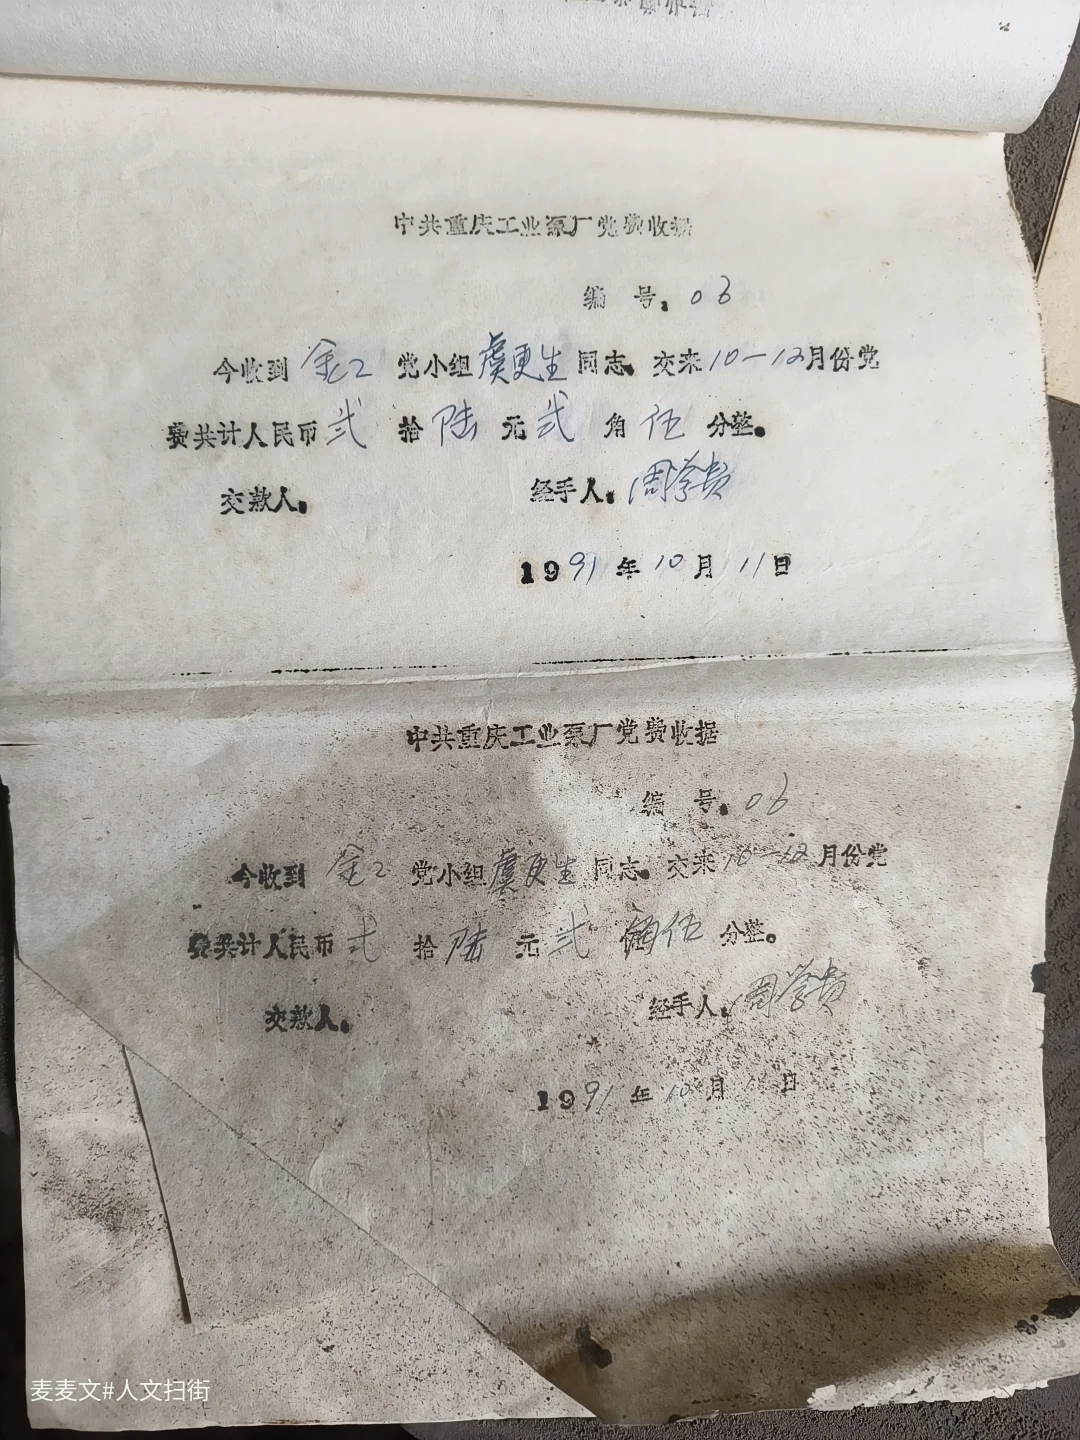 中共重庆工业泵厂党费收据
编 号：06
今收到 金工 党小组 虞更生 同志，交来 10—12 月份党
费共计人民币 弍 拾 陆 元 弍 角 伍 分整。
交款人： 经手人：周学贵
1991 年 10 月 11 日
中共重庆工业泵厂党费收据
编 号：06
今收到 金工 党小组 虞更生 同志，交来 10—12 月份党
费共计人民币 弍 拾 陆 元 弍 角 伍 分整。
交款人： 经手人：周学贵
1991 年 10 月 日
麦麦文#人文扫街